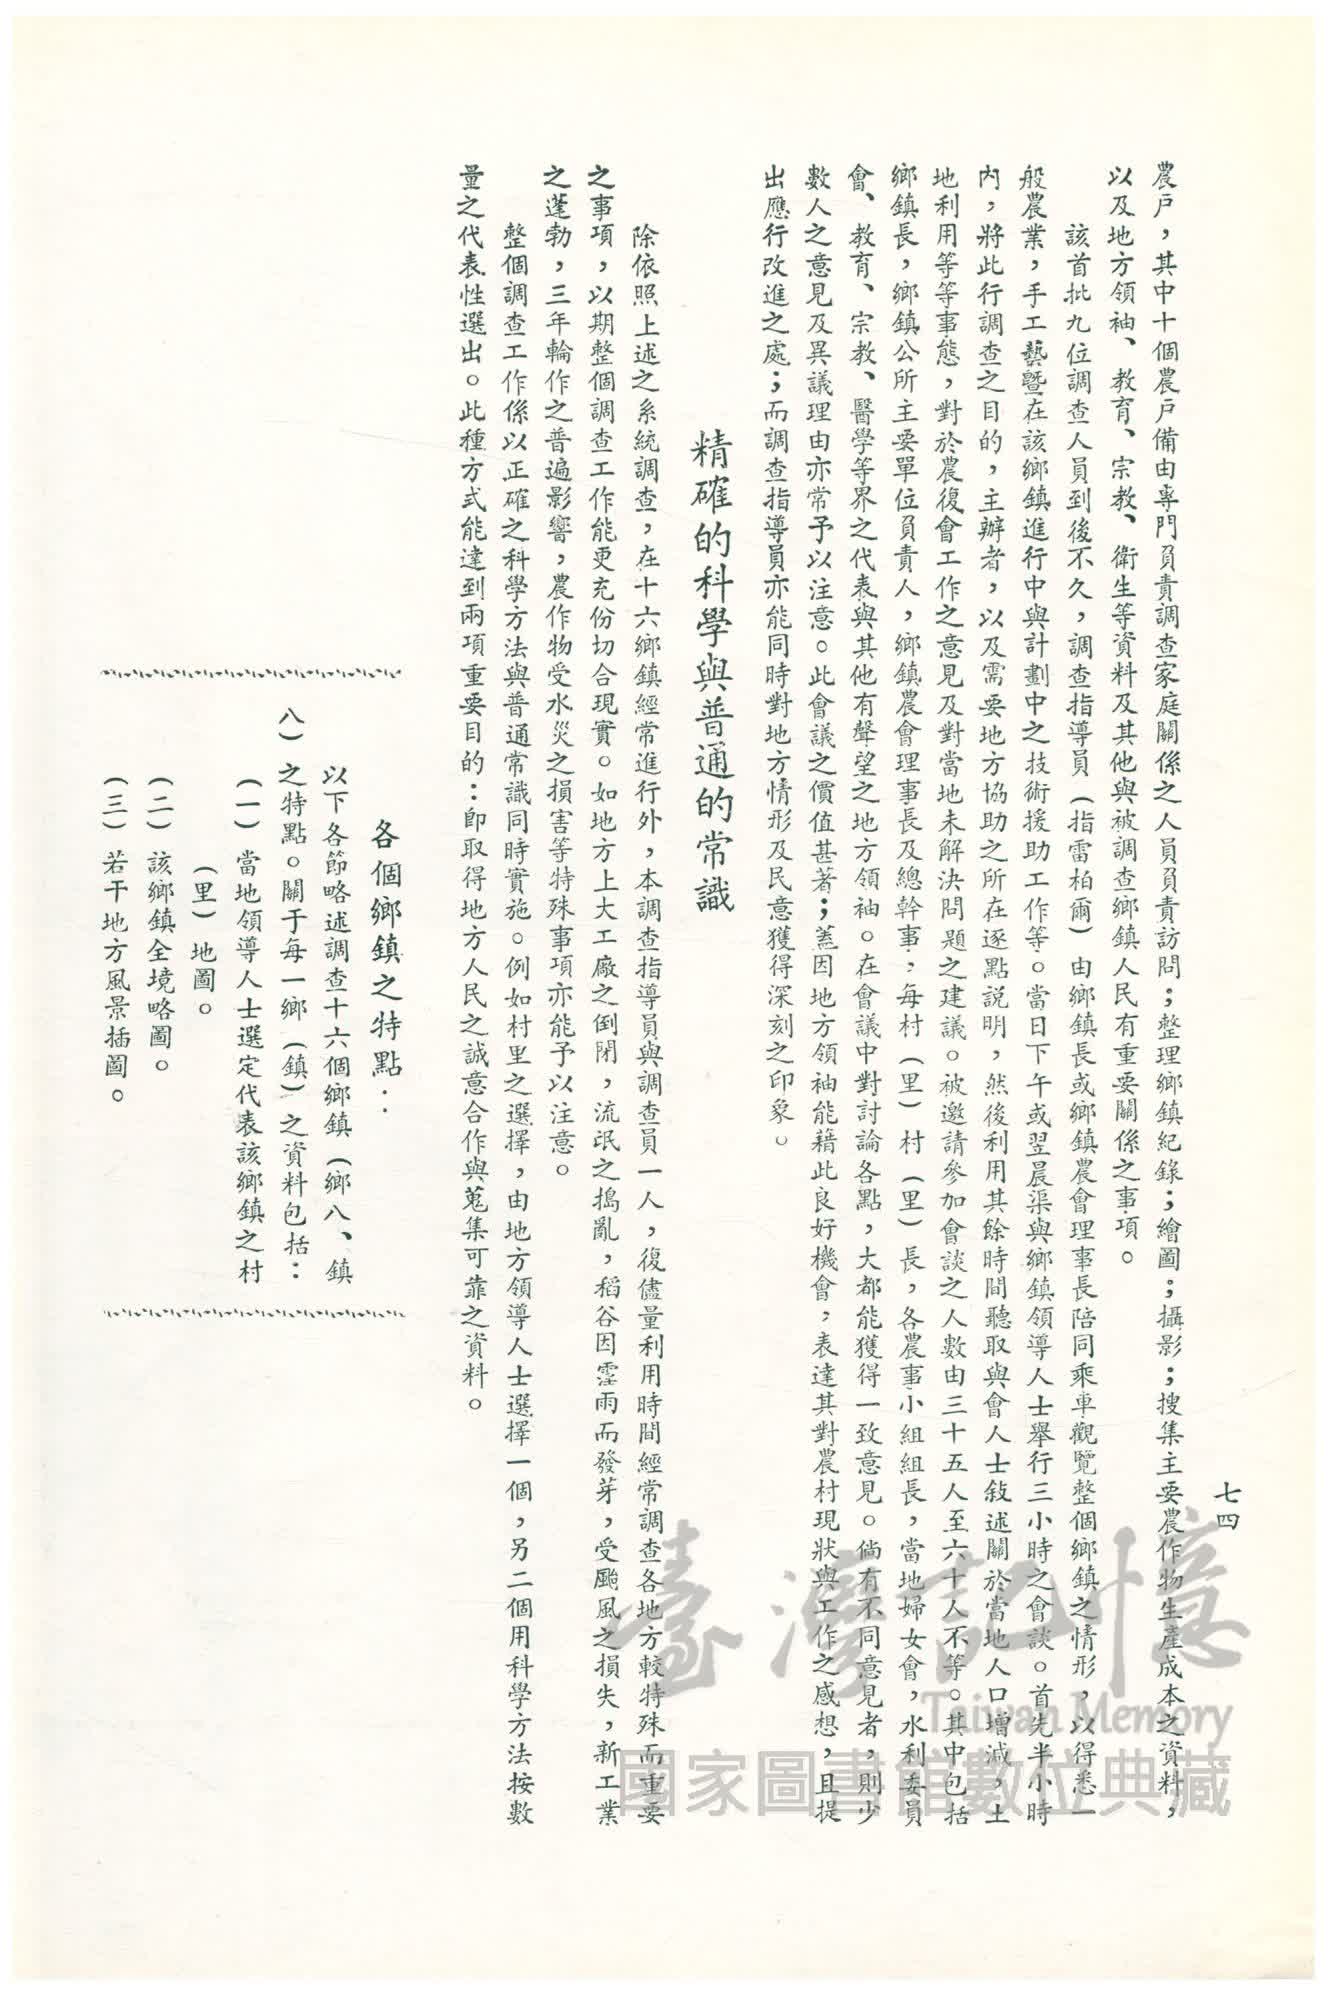 七四
農戶，其中十個農戶備由專門負責調查家庭關係之人員負責訪問；整理鄉鎮紀錄；繪圖；攝影；搜集主要農作物生產成本之資料，
以及地方領袖、教育、宗教、衛生等資料及其他與被調查鄉鎮人民有重要關係之事項。
該首批九位調查人員到後不久，調查指導員（指雷柏爾）由鄉鎮長或鄉鎮農會理事長陪同乘車觀覽整個鄉鎮之情形，以得悉一
般農業，手工藝暨在該鄉鎮進行中與計劃中之技術援助工作等。當日下午或翌晨渠與鄉鎮領導人士舉行三小時之會談。首先半小時
內，將此行調查之目的，主辦者，以及需要地方協助之所在逐點說明，然後利用其餘時間聽取與會人士敍述關於當地人口增減，土
地利用等等事態，對於農復會工作之意見及對當地未解決問題之建議。被邀請參加會談之人數由三十五人至六十人不等。其中包括
鄉鎮長，鄉鎮公所主要單位負責人，鄉鎮農會理事長及總幹事，每村（里）村（里）長，各農事小組組長，當地婦女會，水利委員
會、教育、宗教、醫學等界之代表與其他有聲望之地方領袖。在會議中對討論各點，大都能獲得一致意見。倘有不同意見者，則少
數人之意見及異議理由亦常予以注意。此會議之價值甚著；蓋因地方領袖能藉此良好機會，表達其對農村現狀與工作之感想，且提
出應行改進之處；而調查指導員亦能同時對地方情形及民意獲得深刻之印象。
精確的科學與普通的常識
除依照上述之系統調查，在十六鄉鎮經常進行外，本調查指導員與調查員一人，復儘量利用時間經常調查各地方較特殊而重要
之事項，以期整個調查工作能更充份切合現實。如地方上大工廠之倒閉，流氓之搗亂，稻谷因霪雨而發芽，受颱風之損失，新工業
之蓬勃，三年輪作之普遍影響，農作物受水災之損害等特殊事項亦能予以注意。
整個調查工作係以正確之科學方法與普通常識同時實施。例如村里之選擇，由地方領導人士選擇一個，另二個用科學方法按數
量之代表性選出。此種方式能達到兩項重要目的：卽取得地方人民之誠意合作與蒐集可靠之資料。
各個鄉鎮之特點：
以下各節略述調查十六個鄉鎮（鄉八、鎮
八）之特點。關于每一鄉（鎮）之資料包括：
（一）當地領導人士選定代表該鄉鎮之村
（里）地圖。
（二）該鄉鎮全境略圖。
（三）若干地方風景插圖。
臺灣記憶
Taiwan Memory
國家圖書館數位典藏